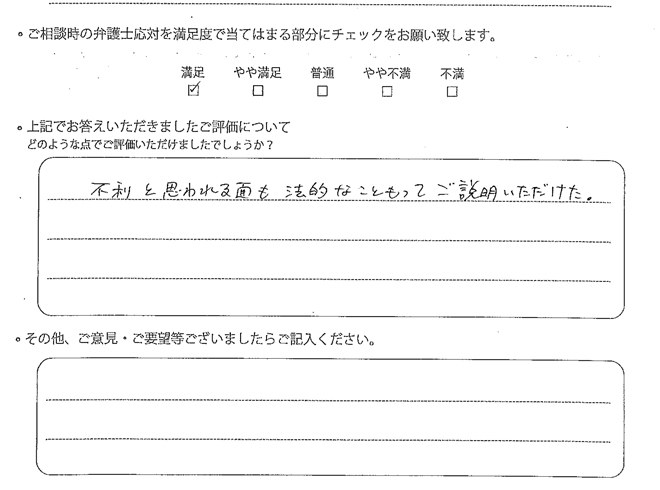 ご相談時の弁護士応対を満足度で当てはまる部分にチェックをお願い致します。
満足 やや満足 普通 やや不満 不満
☑ ☐ ☐ ☐ ☐
上記でお答えいただきましたご評価について
どのような点でご評価いただけましたでしょうか？
不利と思われる面も法的なこともってご説明いただけた。
その他、ご意見・ご要望等ございましたらご記入ください。